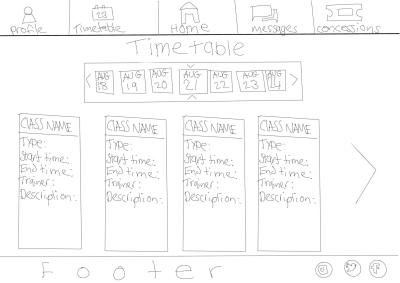 Profile Timetable Home messages concessions
23
Timetable
AUG 18 AUG 19 AUG 20 AUG 21 AUG 22 AUG 23 AUG 24
CLASS NAME
Type:
Start time:
End time:
Trainer:
Description:
CLASS NAME
Type:
Start time:
End time:
Trainer:
Description:
CLASS NAME
Type:
Start time:
End time:
Trainer:
Description:
CLASS NAME
Type:
Start time:
End time:
Trainer:
Description:
Footer